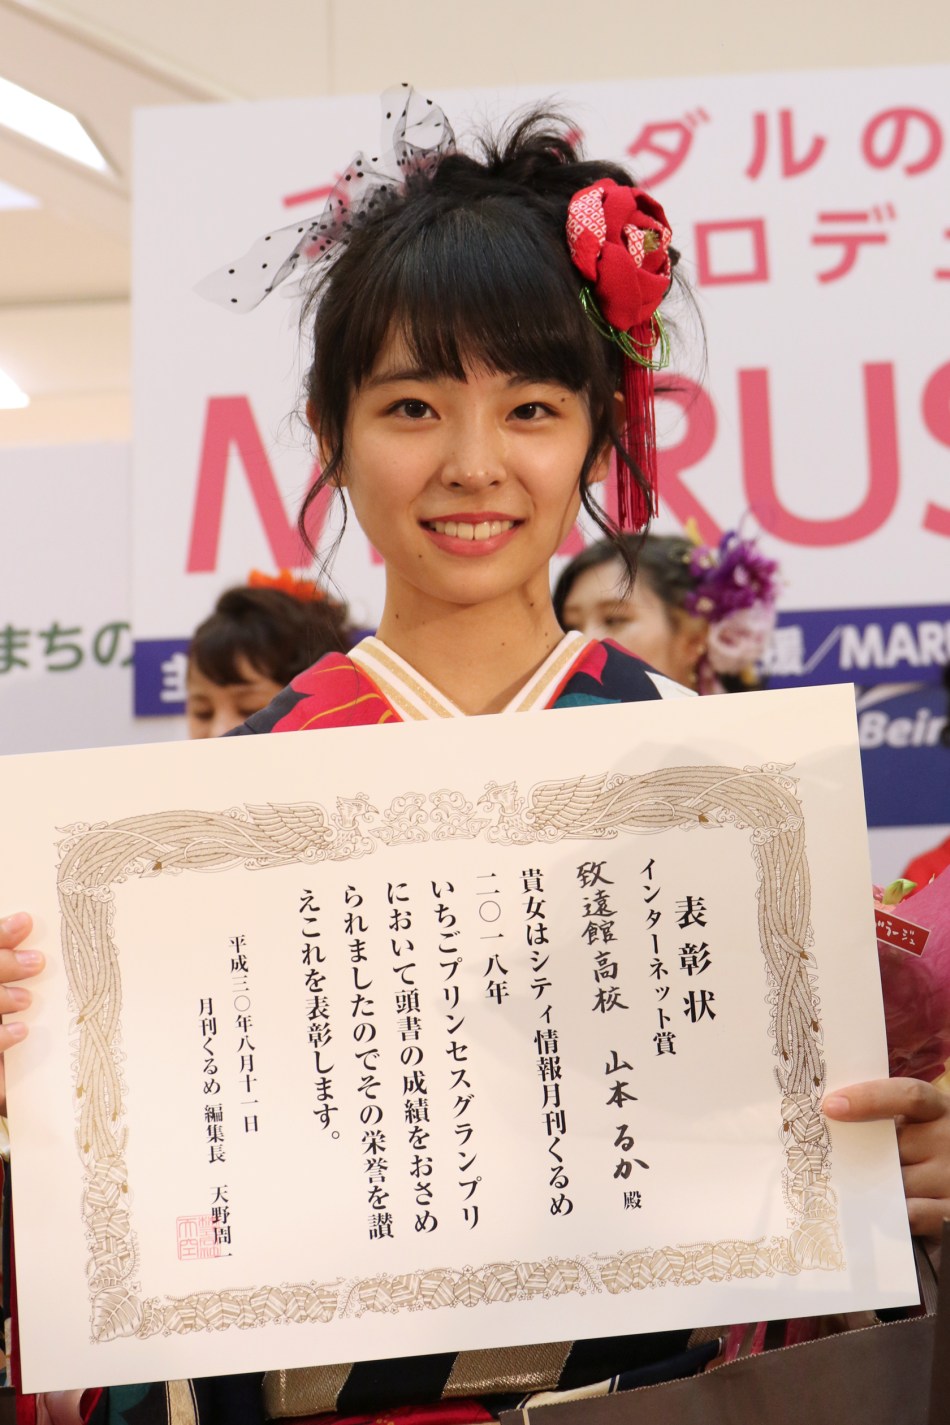 ダルの
ロデ
MARUS
まちの
主
援／MARU
Bein
ラージュ
表彰状
インターネット賞
致遠館高校 山本 るか 殿
貴女はシティ情報月刊くるめ
二〇一八年
いちごプリンセスグランプリ
において頭書の成績をおさめ
られましたのでその栄誉を讃
えこれを表彰します。
平成三〇年八月十一日
月刊くるめ 編集長 天野周一